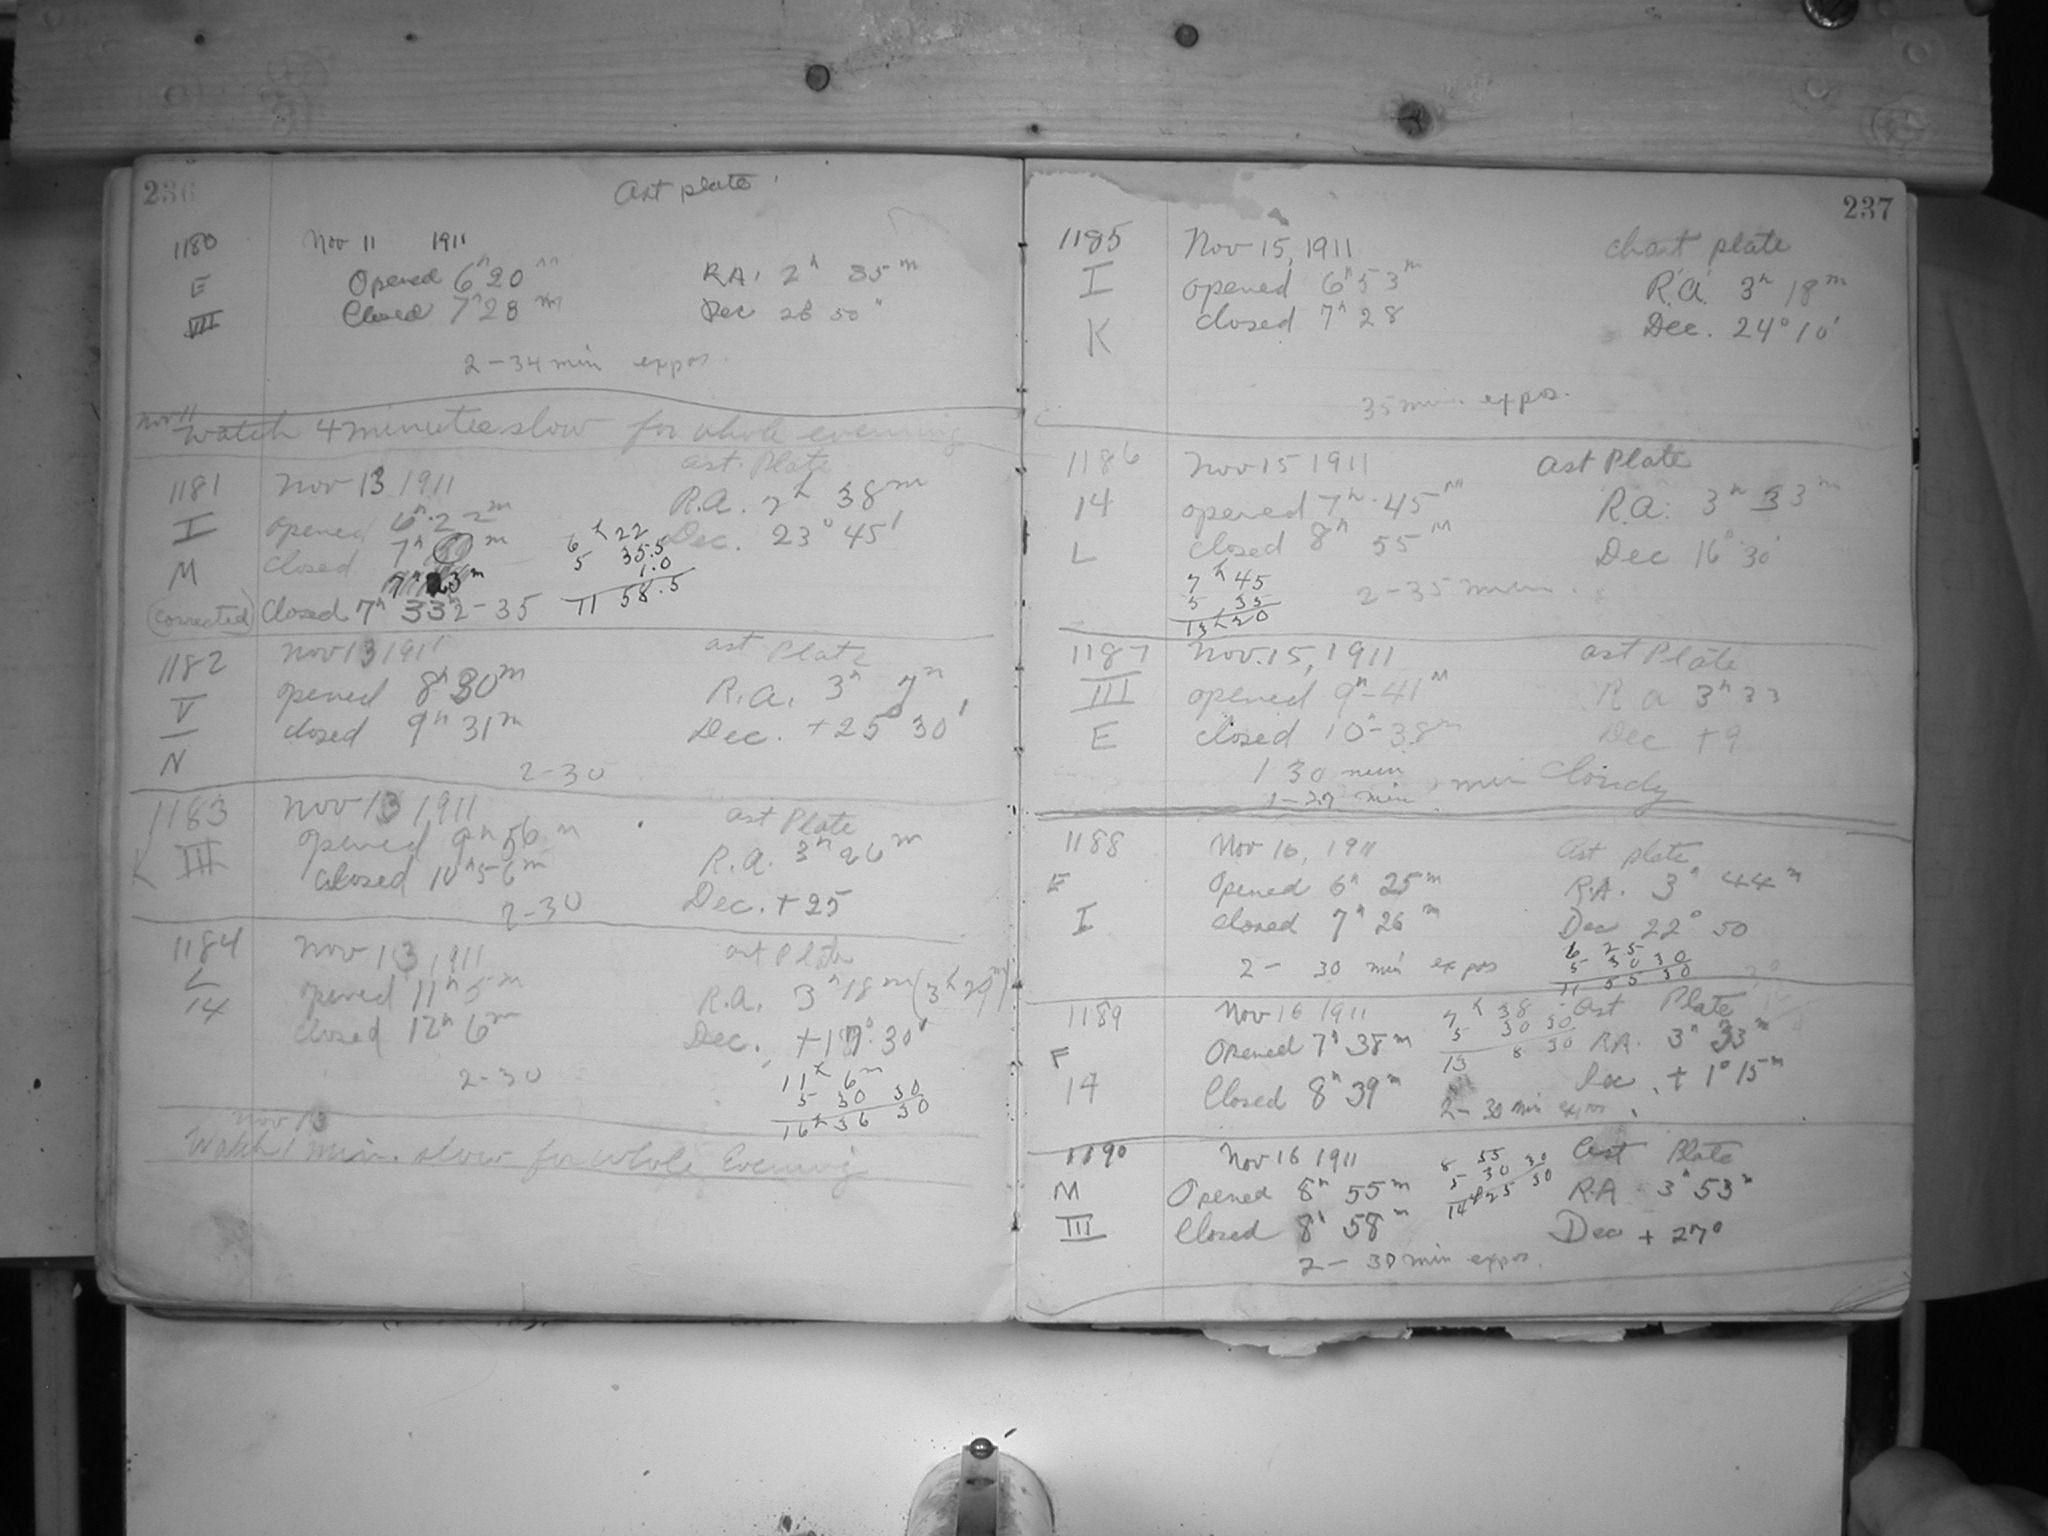 236
Ast plate
1180 Nov 11 1911
E Opened 6h 20m RA. 2h 35m
VII Closed 7h 28m Dec 26 50
2-34 min expos.
Nov 11 Watch 4 minutes slow for whole evening
1181 Nov 13 1911 Ast. Plate
I opened 6h. 22m R.A. 2h 38m
M closed 7h m Dec. 23° 45'
6h 22
5 35.5
1.0
11 58.5
(Corrected) Closed 7h 33m 2-35
1182 Nov 13 1911 Ast Plate
V opened 8h 30m R.A. 3h 7m
N closed 9h 31m Dec. +25° 30'
2-30
1183 Nov 13, 1911 Ast Plate
III opened 9h 56m R.A. 3h 26m
K closed 10h 56m Dec. +25
2-30
1184 Nov 13, 1911 Ast Plate
L opened 11h 5m R.A. 3h 18m (3h 29m)
14 closed 12h 6m Dec. +17° 30'
2-30
11h 6m
5 30 30
16h 36 30
Nov 13
Watch 1 min. slow for whole Evening
237
1185 Nov 15, 1911 chart plate
I opened 6h 53m R.A. 3h 18m
K closed 7h 28 Dec. 24° 10'
35 min. expos.
1186 Nov 15 1911 Ast Plate
14 opened 7h-45m R.A. 3h 33m
L closed 8h 55m Dec 16° 30'
7h 45
5 35
13h 20
2-35 min.
1187 Nov. 15, 1911 Ast Plate
III opened 9h-41m R a 3h 33
E closed 10h-38m Dec +9
1 30 min
1-27 min min Cloudy
1188 Nov 16, 1911 Ast plate
E Opened 6h 25m R.A. 3h 44m
I Closed 7h 26m Dec 22° 50
2- 30 min expos
6 25
5 30 30
11 55 30
1189 Nov 16 1911 Ast Plate
F Opened 7h 38m RA. 3h 33m
14 Closed 8h 39m Dec. +1° 15m
7h 38
5 30 30
13 8 30
2-30 min expos.
1190 Nov 16 1911 Ast Plate
M Opened 8h 55m R.A 3h 53m
III Closed 8h 58m Dec + 27°
8 55
5 30 30
14h 25 30
2- 30 min expos.